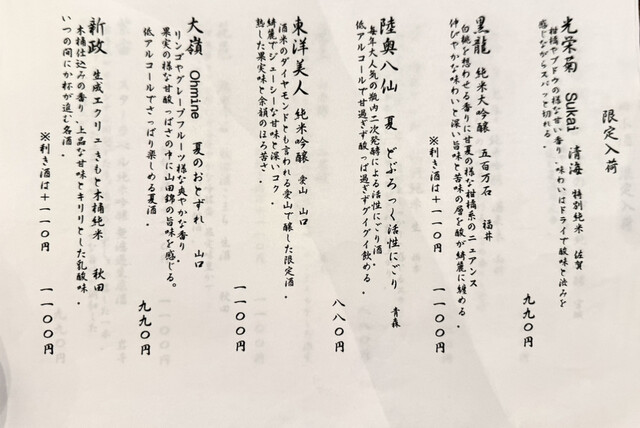 限定入荷
光栄菊 Sukai 清海 特別純米 佐賀
柑橘やブドウの様な甘い香り、味わいはドライで酸味と渋みを
感じながらスパッと切れる。
九九〇円
黒龍 純米大吟醸 五百万石 福井
白桃を想わせる香りに甘夏の様な柑橘系のニュアンス
伸びやかな味わいと深い旨味と苦味の層を酸が綺麗に纏める。
※利き酒は+一一〇円
一一〇〇円
陸奥八仙 夏 どぶろっく活性にごり 青森
毎年大人気の瓶内二次発酵による活性にごり酒。
低アルコールで甘過ぎず酸っぱ過ぎずグイグイ飲める。
八八〇円
東洋美人 純米吟醸 愛山 山口
酒米のダイヤモンドとも言われる愛山で醸した限定酒。
綺麗でジューシーな甘味と深いコク。
熟した果実味と余韻のほろ苦さ。
一一〇〇円
大嶺 Ohmine 夏のおとずれ 山口
リンゴやグレープフルーツ様な爽やかな香り
果実の様な甘酸っぱさの中に山田錦の旨味を感じる。
低アルコールでさっぱり楽しめる夏酒。
九九〇円
新政 生成エクリュ きもと木桶純米 秋田
木桶仕込みの香り、上品な甘味とキリリとした乳酸味。
いつの間にか杯が進む名酒。
※利き酒は+一一〇円
一一〇〇円